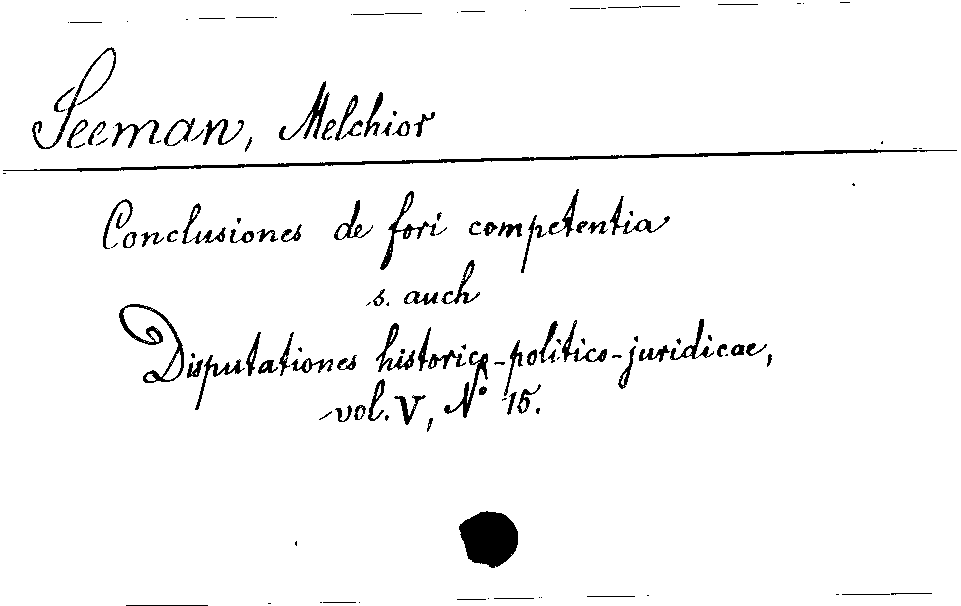 Seeman, Melchior
Conclusiones de fori competentia
s. auch
Disputationes historico-politico-juridicae,
vol. V, No 15.